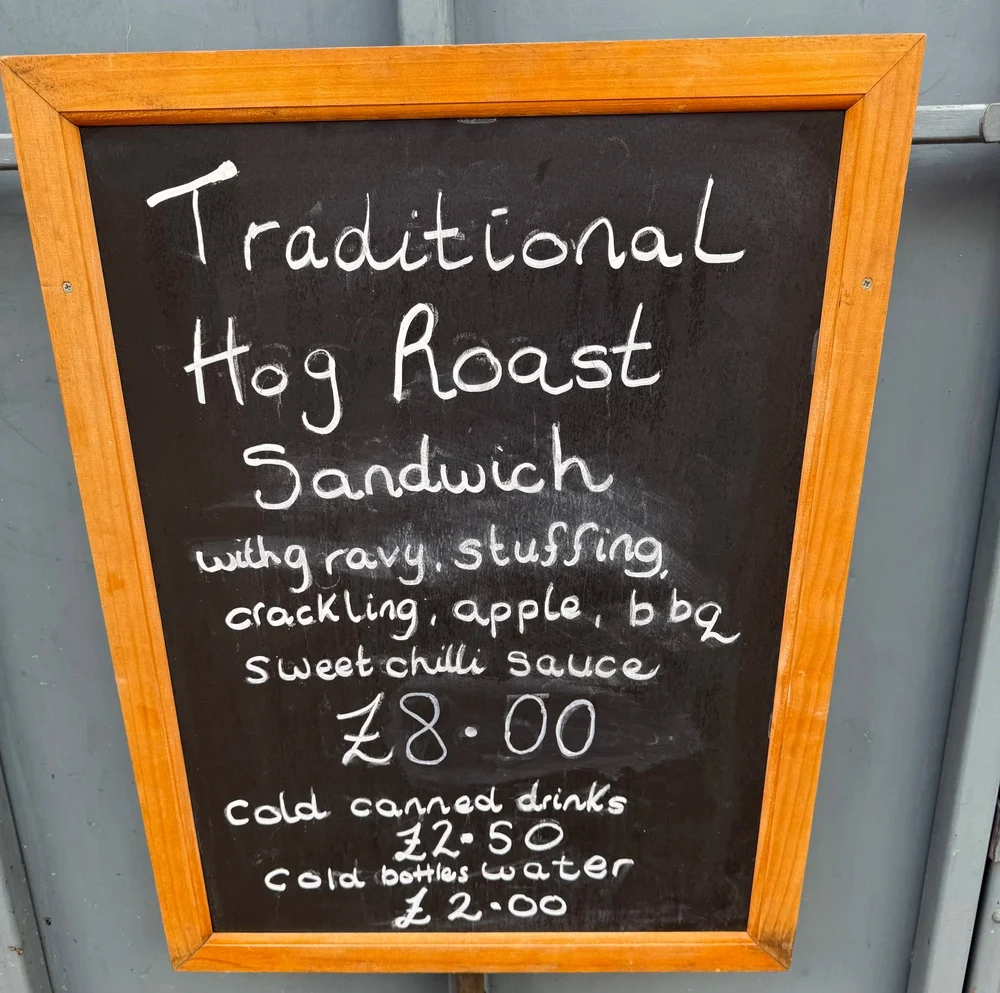 Traditional
Hog Roast
Sandwich
with gravy, stuffing,
crackling, apple, bbq
sweet chilli sauce
£8.00
cold canned drinks
£2.50
cold bottles water
£2.00